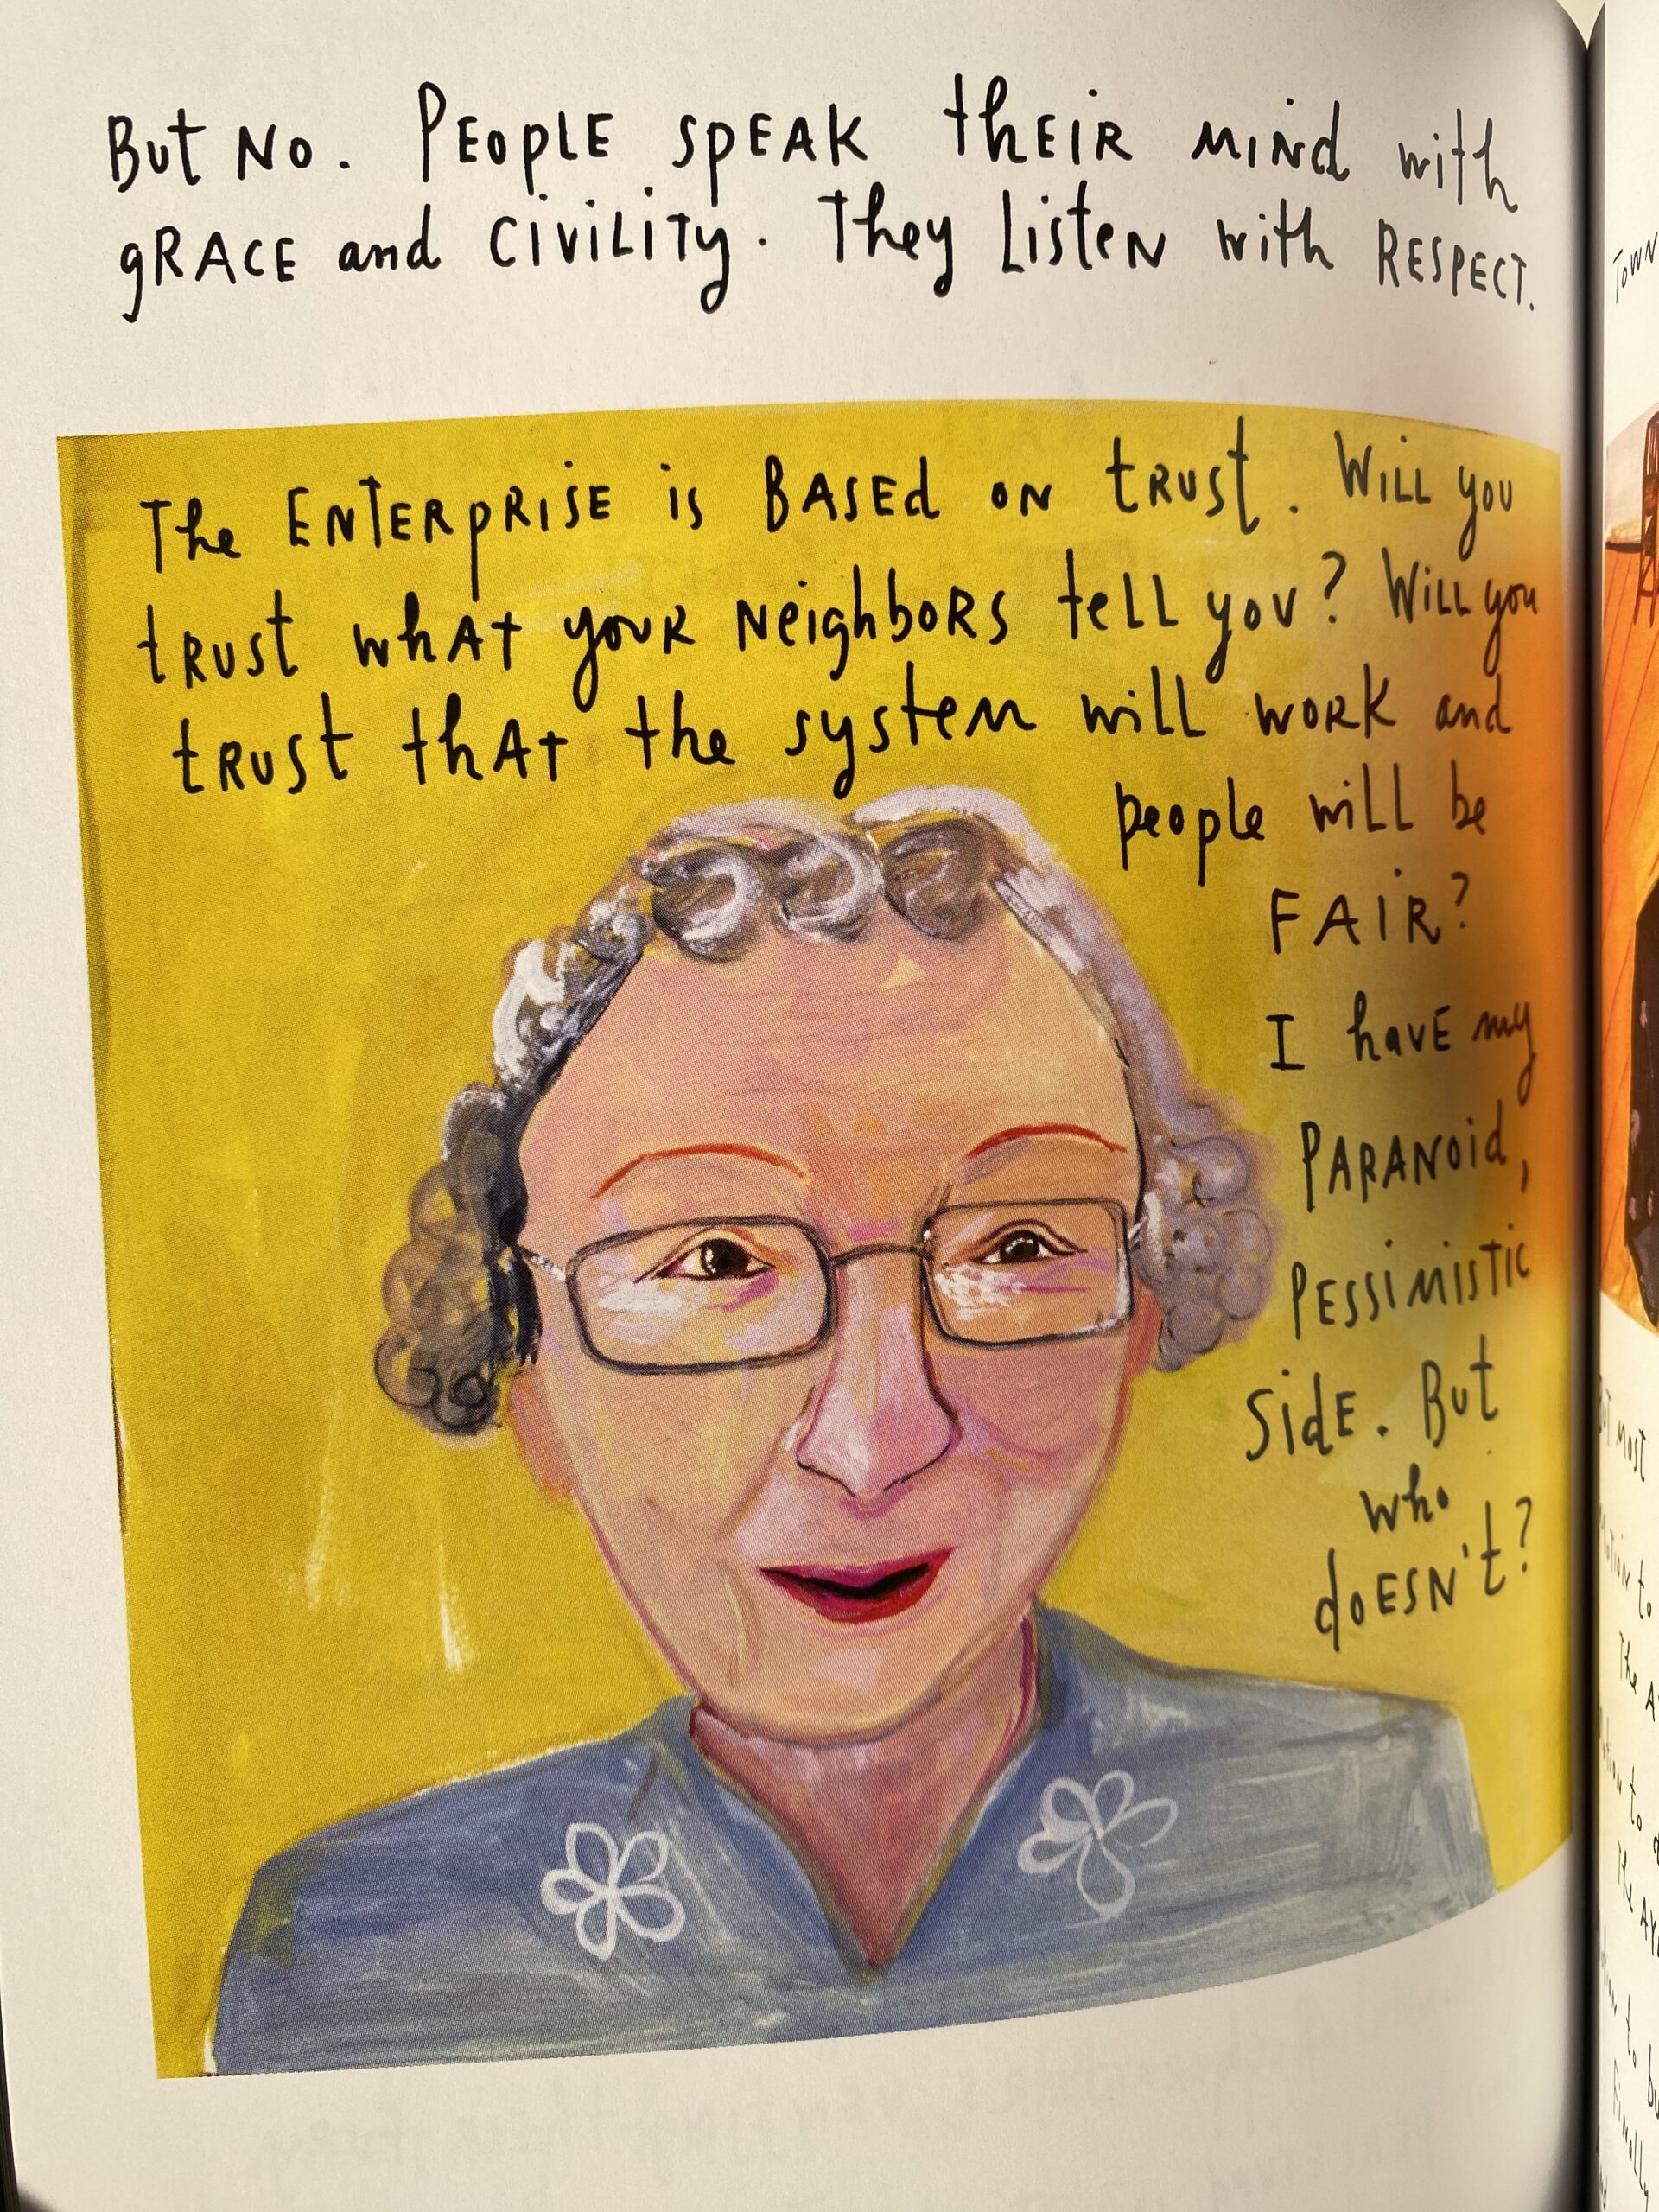 But No. PEOPLE SPEAK thEIR MINd with
gRACE and CiViLiTy. They ListeN with RESPECT.
The ENTERPRISE is BASEd ON tRUSt. WiLL you
tRUSt whAt youR NeighboRS tell you? WiLL you
tRUSt thAt the system will woRK and
people will be
FAIR?
I havE my
PARANoid,
PESSiMiSTiC
SidE. But
who
doESN't?
TOWN
MOST
to
The
to
The
to
Finally